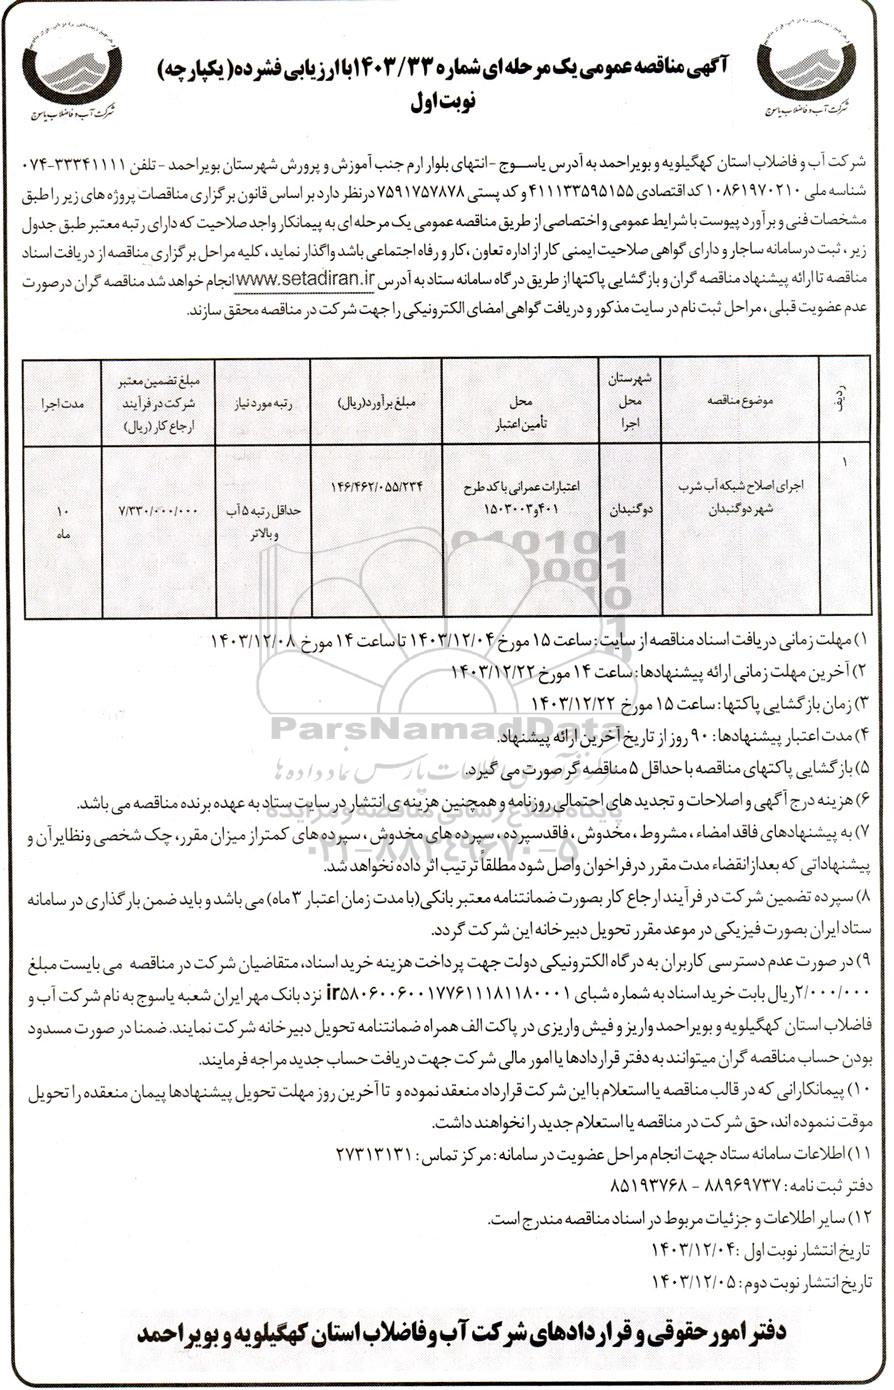 آگهی مناقصه عمومی یک مرحله ای شماره ۱۴۰۳/۳۳ با ارزیابی فشرده (یکپارچه)
نوبت اول
شرکت آب و فاضلاب یاسوج
شرکت آب و فاضلاب یاسوج
شرکت آب و فاضلاب استان کهگیلویه و بویراحمد به آدرس یاسوج - انتهای بلوار ارم جنب آموزش و پرورش شهرستان بویراحمد - تلفن ۳۳۳۴۱۱۱۱-۰۷۴
شناسه ملی ۱۰۸۶۱۹۷۰۲۱۰ کد اقتصادی ۴۱۱۱۳۳۵۹۵۱۵۵ و کد پستی ۷۵۹۱۷۵۷۸۷۸ در نظر دارد بر اساس قانون برگزاری مناقصات پروژه های زیر را طبق
مشخصات فنی و برآورد پیوست با شرایط عمومی و اختصاصی از طریق مناقصه عمومی یک مرحله ای به پیمانکار واجد صلاحیت که دارای رتبه معتبر طبق جدول
زیر ، ثبت در سامانه ساجار و دارای گواهی صلاحیت ایمنی کار از اداره تعاون ، کار و رفاه اجتماعی باشد واگذار نماید ، کلیه مراحل برگزاری مناقصه از دریافت اسناد
مناقصه تا ارائه پیشنهاد مناقصه گران و بازگشایی پاکتها از طریق درگاه سامانه ستاد به آدرس www.setadiran.ir انجام خواهد شد مناقصه گران در صورت
عدم عضویت قبلی ، مراحل ثبت نام در سایت مذکور و دریافت گواهی امضای الکترونیکی را جهت شرکت در مناقصه محقق سازند.
ردیف
موضوع مناقصه
شهرستان محل اجرا
محل تأمین اعتبار
مبلغ برآورد(ریال)
رتبه مورد نیاز
مبلغ تضمین معتبر شرکت در فرآیند ارجاع کار (ریال)
مدت اجرا
۱
اجرای اصلاح شبکه آب شرب شهر دوگنبدان
دوگنبدان
اعتبارات عمرانی با کد طرح ۴۰۱و۱۵۰۳۰۰۳
۱۴۶/۴۶۲/۰۵۵/۲۳۴
حداقل رتبه ۵ آب و بالاتر
۷/۳۳۰/۰۰۰/۰۰۰
۱۰ ماه
۱) مهلت زمانی دریافت اسناد مناقصه از سایت : ساعت ۱۵ مورخ ۱۴۰۳/۱۲/۰۴ تا ساعت ۱۴ مورخ ۱۴۰۳/۱۲/۰۸
۲) آخرین مهلت زمانی ارائه پیشنهادها : ساعت ۱۴ مورخ ۱۴۰۳/۱۲/۲۲
۳) زمان بازگشایی پاکتها : ساعت ۱۵ مورخ ۱۴۰۳/۱۲/۲۲
ParsNamadData
۴) مدت اعتبار پیشنهادها : ۹۰ روز از تاریخ آخرین ارائه پیشنهاد.
۵) بازگشایی پاکتهای مناقصه با حداقل ۵ مناقصه گر صورت می گیرد.
۶) هزینه درج آگهی و اصلاحات و تجدید های احتمالی روزنامه و همچنین هزینه ی انتشار در سایت ستاد به عهده برنده مناقصه می باشد.
پایگاه اطلاع رسانی مناقصه و مزایده
۷) به پیشنهادهای فاقد امضاء ، مشروط ، مخدوش ، فاقد سپرده ، سپرده های مخدوش ، سپرده های کمتر از میزان مقرر، چک شخصی و نظایر آن و
پیشنهاداتی که بعد از انقضاء مدت مقرر در فراخوان واصل شود مطلقاً ترتیب اثر داده نخواهد شد.
۰۲۱-۸۸۳۴۹۶۷۰-۵
۸) سپرده تضمین شرکت در فرآیند ارجاع کار بصورت ضمانتنامه معتبر بانکی(با مدت زمان اعتبار ۳ ماه) می باشد و باید ضمن بارگذاری در سامانه
ستاد ایران بصورت فیزیکی در موعد مقرر تحویل دبیرخانه این شرکت گردد.
۹) در صورت عدم دسترسی کاربران به درگاه الکترونیکی دولت جهت پرداخت هزینه خرید اسناد، متقاضیان شرکت در مناقصه می بایست مبلغ
۲/۰۰۰/۰۰۰ریال بابت خرید اسناد به شماره شبای ir۵۸۰۶۰۰۶۰۰۱۷۷۶۱۱۱۸۱۱۸۰۰۰۱ نزد بانک مهر ایران شعبه یاسوج به نام شرکت آب و
فاضلاب استان کهگیلویه و بویراحمد واریز و فیش واریزی در پاکت الف همراه ضمانتنامه تحویل دبیرخانه شرکت نمایند. ضمنا در صورت مسدود
بودن حساب مناقصه گران میتوانند به دفتر قراردادها یا امور مالی شرکت جهت دریافت حساب جدید مراجعه فرمایند.
۱۰) پیمانکارانی که در قالب مناقصه یا استعلام با این شرکت قرارداد منعقد نموده و تا آخرین روز مهلت تحویل پیشنهادها پیمان منعقده را تحویل
موقت ننموده اند، حق شرکت در مناقصه یا استعلام جدید را نخواهند داشت.
۱۱) اطلاعات سامانه ستاد جهت انجام مراحل عضویت در سامانه : مرکز تماس : ۲۷۳۱۳۱۳۱
دفتر ثبت نامه : ۸۸۹۶۹۷۳۷ - ۸۵۱۹۳۷۶۸
۱۲) سایر اطلاعات و جزئیات مربوط در اسناد مناقصه مندرج است.
تاریخ انتشار نوبت اول : ۱۴۰۳/۱۲/۰۴
تاریخ انتشار نوبت دوم : ۱۴۰۳/۱۲/۰۵
دفتر امور حقوقی و قراردادهای شرکت آب و فاضلاب استان کهگیلویه و بویراحمد